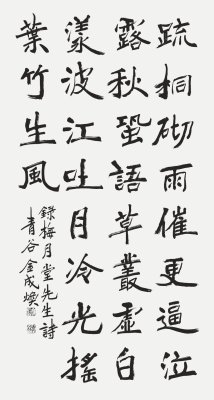 疏桐砌雨催更逼泣
露秋蛩語草叢虛白
漾波江吐月冷光搖
葉竹生風
錄梅月堂先生詩
青谷金成煥